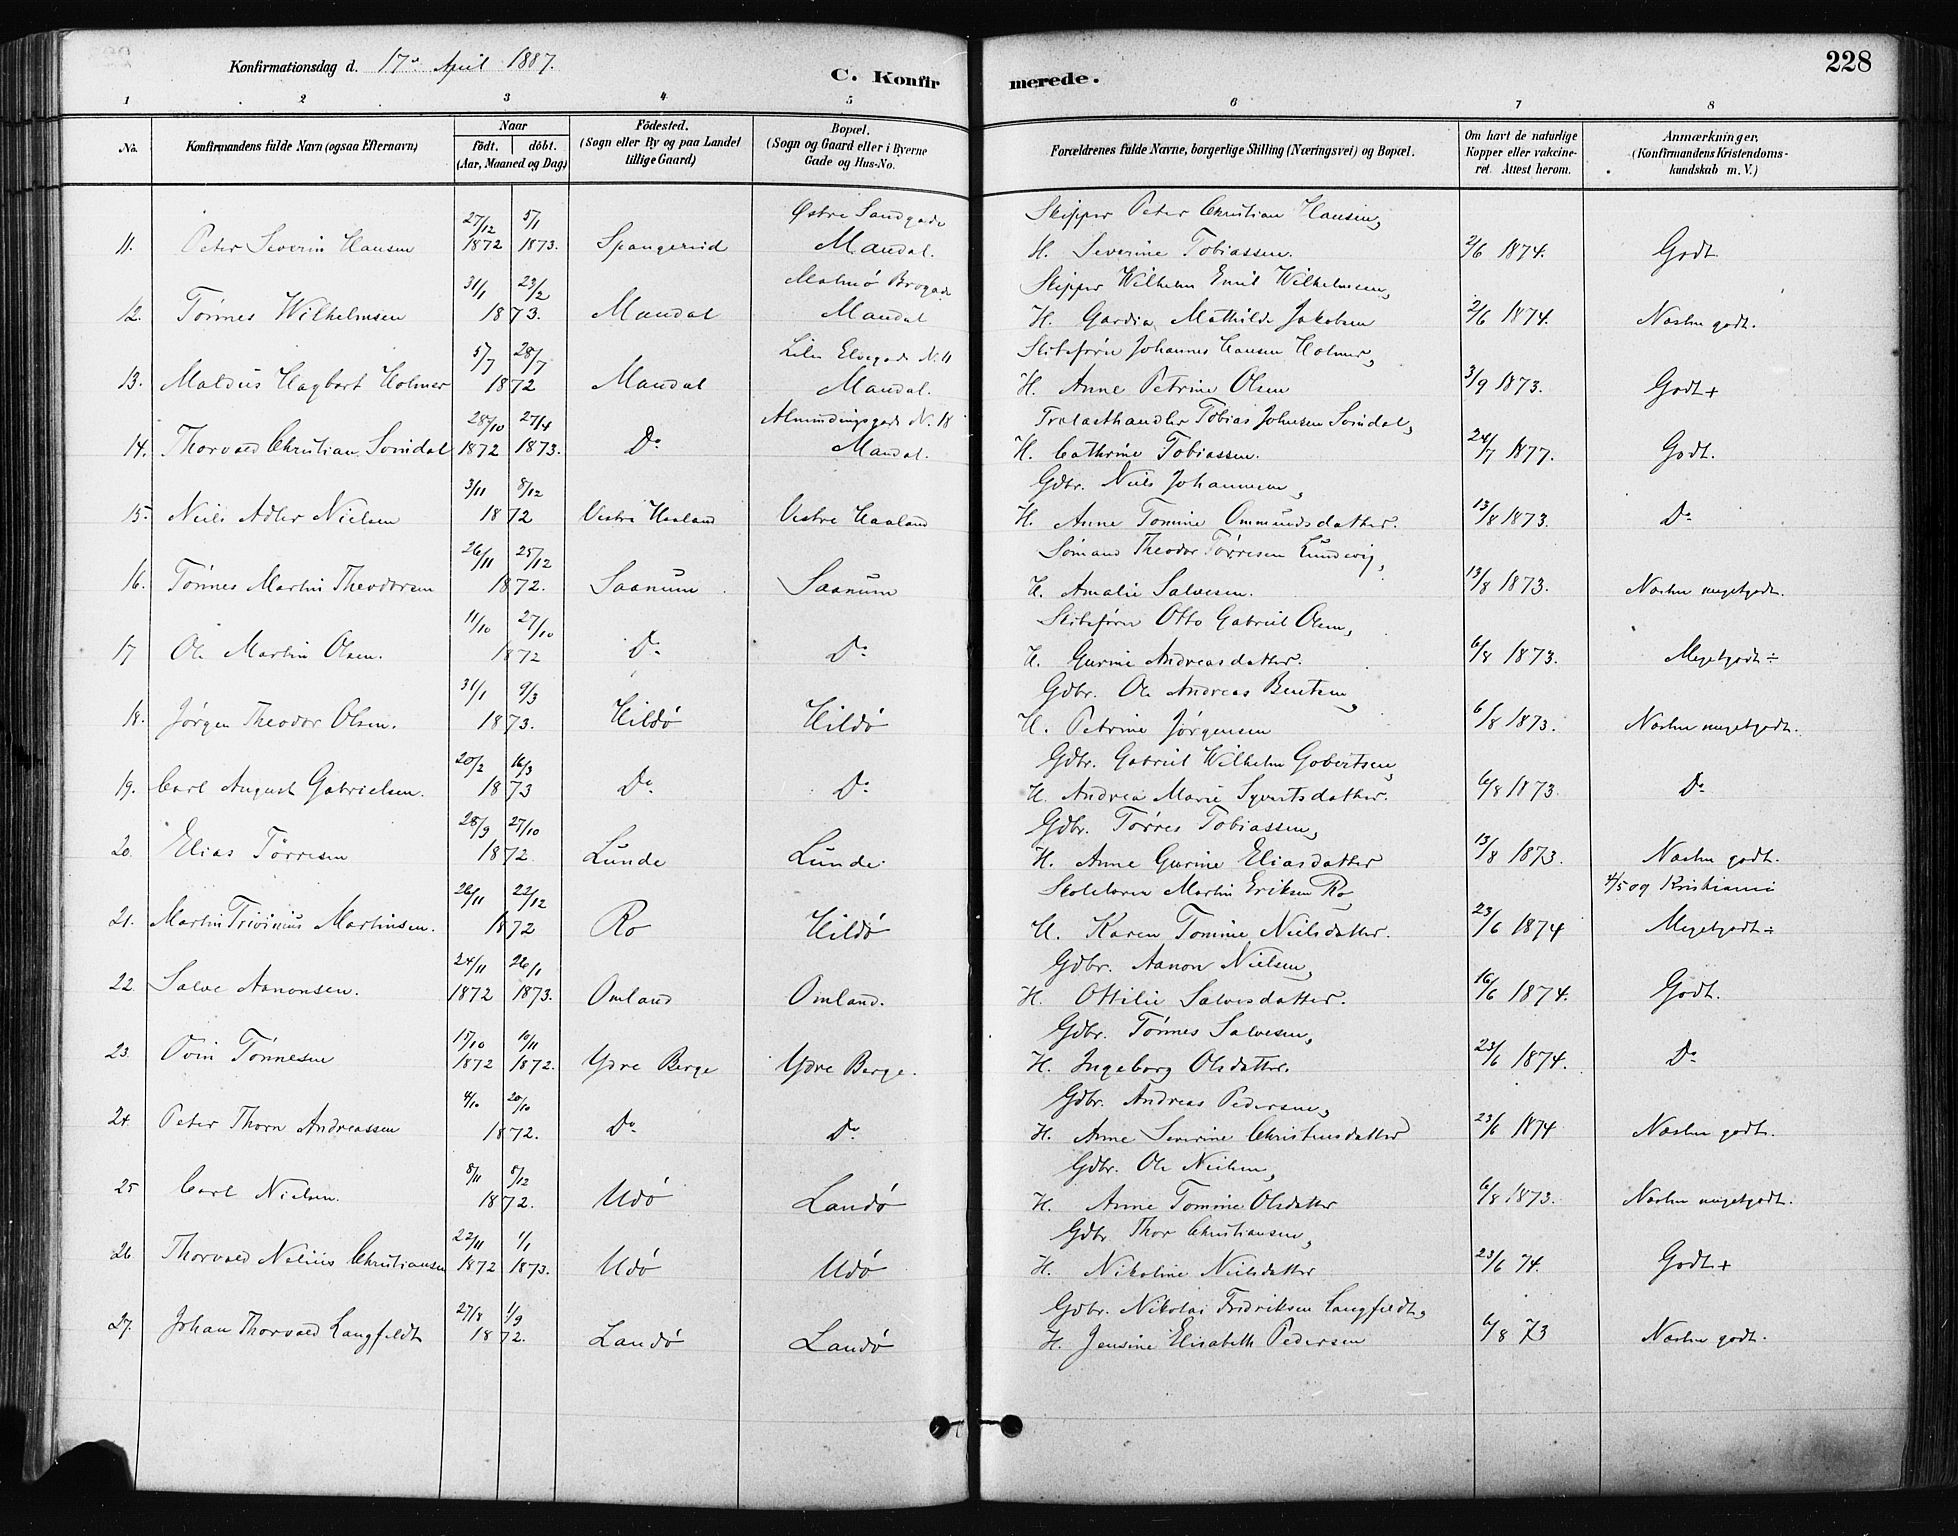 Konfirmationsdag d. 17de April 1887.
C. Konfirmerede.
228
1 2 3 4 5 6 7 8
No.
Konfirmandens fulde Navn (ogsaa Efternavn)
Naar
födt. döbt.
(Aar, Maaned og Dag)
Födested.
(Sogn eller By og paa Landet
tillige Gaard)
Bopæl.
(Sogn og Gaard eller i Byerne
Gade og Hus-No.
Forældrenes fulde Navne, borgerlige Stilling (Næringsvei) og Bopæl.
Om havt de naturlige
Kopper eller vakcine-
ret. Attest herom.
Anmærkninger,
(Konfirmandens Kristendoms-
kundskab m. V.)
27/12 5/1 Østre Sandgade Skipper Peter Christian Hansen,
11. Peter Severin Hansen 1872 1873. Spangereid Mandal. H. Severine Tobiassen. 2/6 1874. Godt.
31/1 23/2 Malmø Brogade Skipper Wilhelm Emil Wilhelmsen,
12. Tönnes Wilhelmsen 1873. Mandal Mandal H. Gardia Mathilde Jakobsen 2/6 1874. Næsten godt.
5/7 28/7 Lille Elvegade N. 11 Skibsfører Johannes Hansen Holmer,
13. Maldus Hagbart Holmer 1872 Mandal Mandal. H. Anne Petrine Olsen 3/9 1873. Godt+
28/10 27/4 Almindingsgade N. 18 Trælasthandler Tobias Johnsen Svindal,
14. Thorvald Christian Svindal 1872 1873. Do Mandal. H. Cathrine Tobiassen. 24/7 1877. Godt.
3/11 8/12 Gdbr. Niels Johannesen,
15. Neils Adler Nielsen 1872 Vestre Haaland Vestre Haaland H. Anne Tomine Ommundsdatter. 13/8 1873. Do
26/11 25/12 Sømand Theodor Tørresen Lundevig,
16. Tönnes Martin Theodorsen 1872. Saanum Saanum H. Amalie Salvesen. 13/8 1873. Næsten megetgodt.
11/10 27/10 Skibsfører Otto Gabriel Olsen,
17 Ole Martin Olsen. 1872 Do Do H. Gurine Andreasdatter. 6/8 1873. Megetgodt÷
31/1 9/3 Gdbr. Ole Andreas Bentsen,
18. Jørgen Theodor Olsen. 1873. Hildö Hildö H. Petrine Jørgensen 6/8 1873. Næsten megetgodt.
20/2 16/3 Gdbr. Gabriel Wilhelm Gobertsen,
19. Carl August Gabrielsen. 1873 Do Do H. Andrea Marie Syvertsdatter. 6/8 1873. Do
28/9 27/10 Gdbr. Tørres Tobiassen,
20. Elias Törresen 1872. Lunde Lunde. H. Anne Gurine Eliasdatter 13/8 1873. Næsten godt.
26/11 22/12 Skolelærer Martin Eriksen Ro, 4/5 09 Kristiania
21. Martin Trivinius Martinsen. 1872 Ro Hildö H. Karen Tomine Nielsdatter. 23/6 1874 Megetgodt÷
24/11 26/1 Gdbr. Aanon Nielsen,
22. Salve Aanonsen. 1872 1873. Omland Omland. H. Ottilie Salvesdatter. 16/6 1874. Godt.
15/10 10/11 Gdbr. Tönnes Salvesen,
23. Ovin Tönnesen 1872 1872. Ydre Berge Ydre Berge. H. Ingeborg Olsdatter. 23/6 1874. Do
4/10 20/10 Gdbr. Andreas Pedersen,
24 Peter Thorn Andreassen 1872. Do Do H. Anne Severine Christensdatter 23/6 1874 Næsten godt.
8/11 5/12 Gdbr. Ole Nielsen,
25 Carl Nielsen. 1872. Udö Landö H. Anne Tomine Olsdatter 6/8 1873. Næsten megetgodt.
22/11 1/1 Gdbr. Thor Christiansen,
26 Thorvald Nelius Christiansen 1872 1873. Udö Udö H. Nikoline Nielsdatter 23/6 74. Godt+
27/8 1/9 Gdbr. Nikolai Fredriksen Langfeldt,
27. Johan Thorvald Langfeldt 1872. Landö Landö H. Jensine Elisabeth Pedersen 6/8 73 Næsten godt.